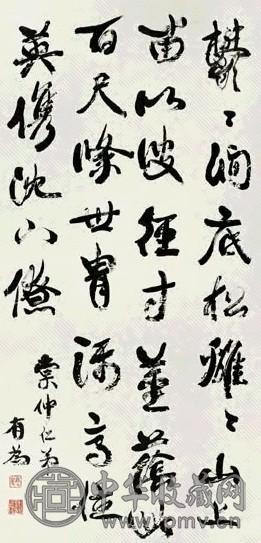 鬱〻澗底松離〻山上
苗以彼徑寸莖蔭此
百尺條世胄躡高位
英儁沈下僚
棠仲仁弟
有為
中华收藏网
www.pmv.cn